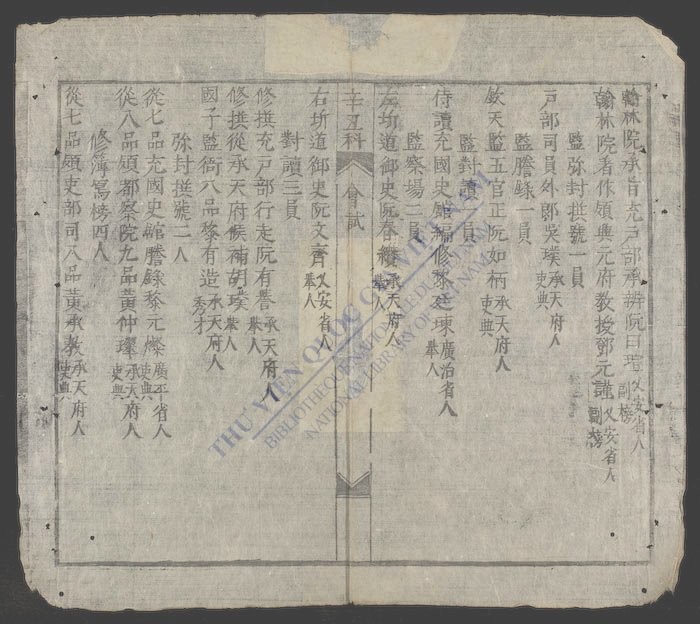 翰林院承旨充戶部承辦阮曰瑎乂安省人副榜
翰林院著作領興元府教授鄧元謹乂安省人副榜
監彌封撰號一員
戶部司員外郎吳璞承天府人吏典
監謄錄一員
欽天監五官正阮如柄承天府人吏典
監對讀一員
侍讀充國史館編修黎廷東廣治省人舉人
監察場二員
左圻道御史阮春 承天府人舉人
辛丑科 會試
右圻道御史阮文 乂安省人舉人
對讀三員
修撰充戶部行走阮有譽承天府人舉人
修撰從承天府候補胡璞舉人
國子監衙八品黎有造承天府人秀才
彌封撰號二人
從七品充國史館謄錄黎元燦廣平省人吏典
從八品領都察院九品黃仲瓘承天府人吏典
修簿寫榜四人
從七品領吏部司八品黃承教承天府人吏典
THƯ VIỆN QUỐC GIA VIỆT NAM
BIBLIOTHEQUE NATIONALE DU VIETNAM
NATIONAL LIBRARY OF VIETNAM